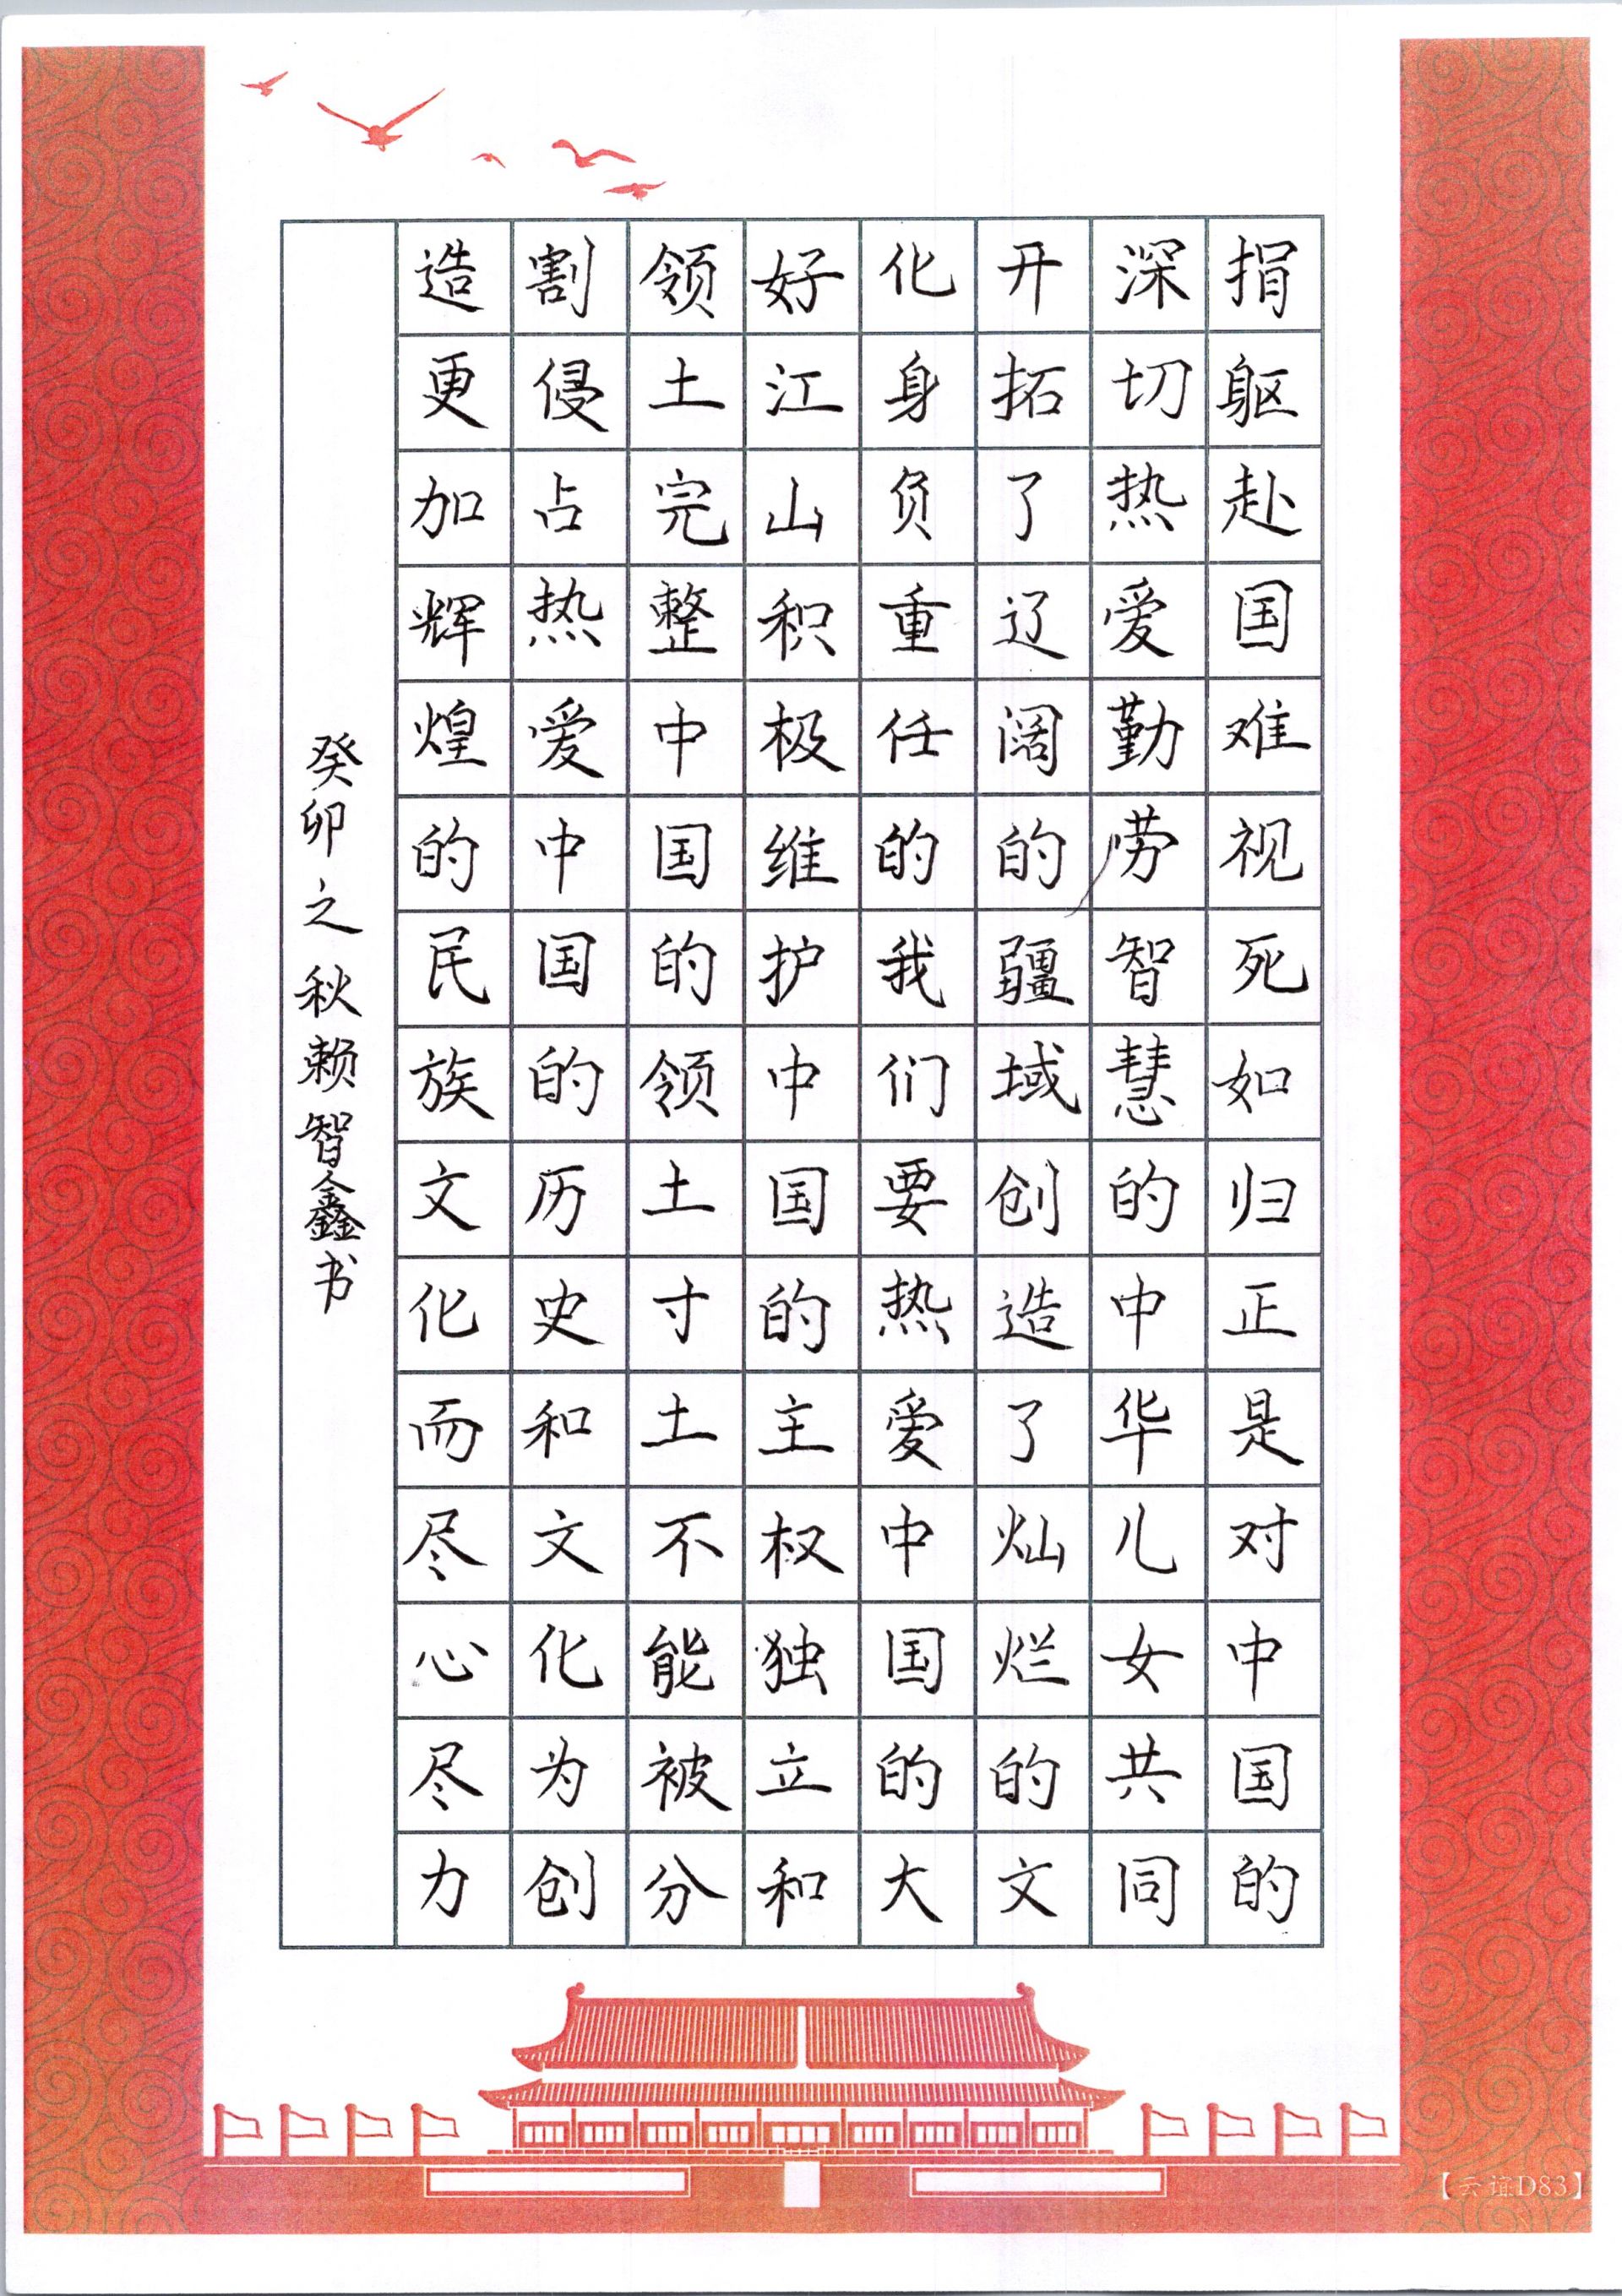 捐躯赴国难视死如归正是对中国的
深切热爱勤劳智慧的中华儿女共同
开拓了辽阔的疆域创造了灿烂的文
化身负重任的我们要热爱中国的大
好江山积极维护中国的主权独立和
领土完整中国的领土寸土不能被分
割侵占热爱中国的历史和文化为创
造更加辉煌的民族文化而尽心尽力
癸卯之秋赖智鑫书
【云谊D83】